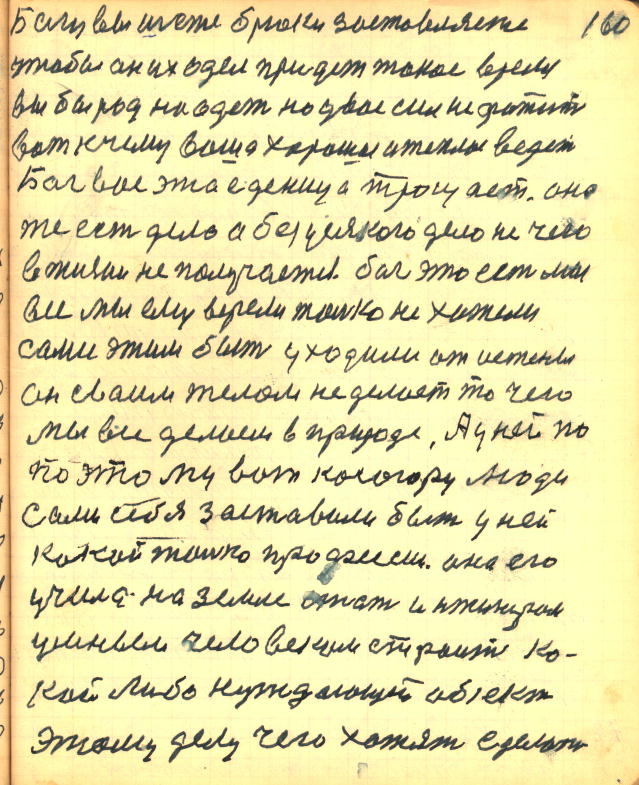 Богу вы шете брюки заставляете 160
чтобы он их одел придет такое время
вы бы рад на одет но двое сил не фатит
вот к чему ваша хороша и тепло ведет
Бог вое эта еденица трогуает. она
же ест дело а без уелкого дело не чего
в жизни не получаетси. бог это ест мы
вее мы ему верели толко не хотели
сами этим быт уходили от истены
он сваим телом не делает то чего
мы вее делаем в природе, А у ней по
по этому вот косогору люди
сами себя заставили быт у ней
какой толко професеи. она его
учила на земле стат инжинером
умным человеком строит ко-
кой либо нуждающий обект
этому делу чего хотят сделат